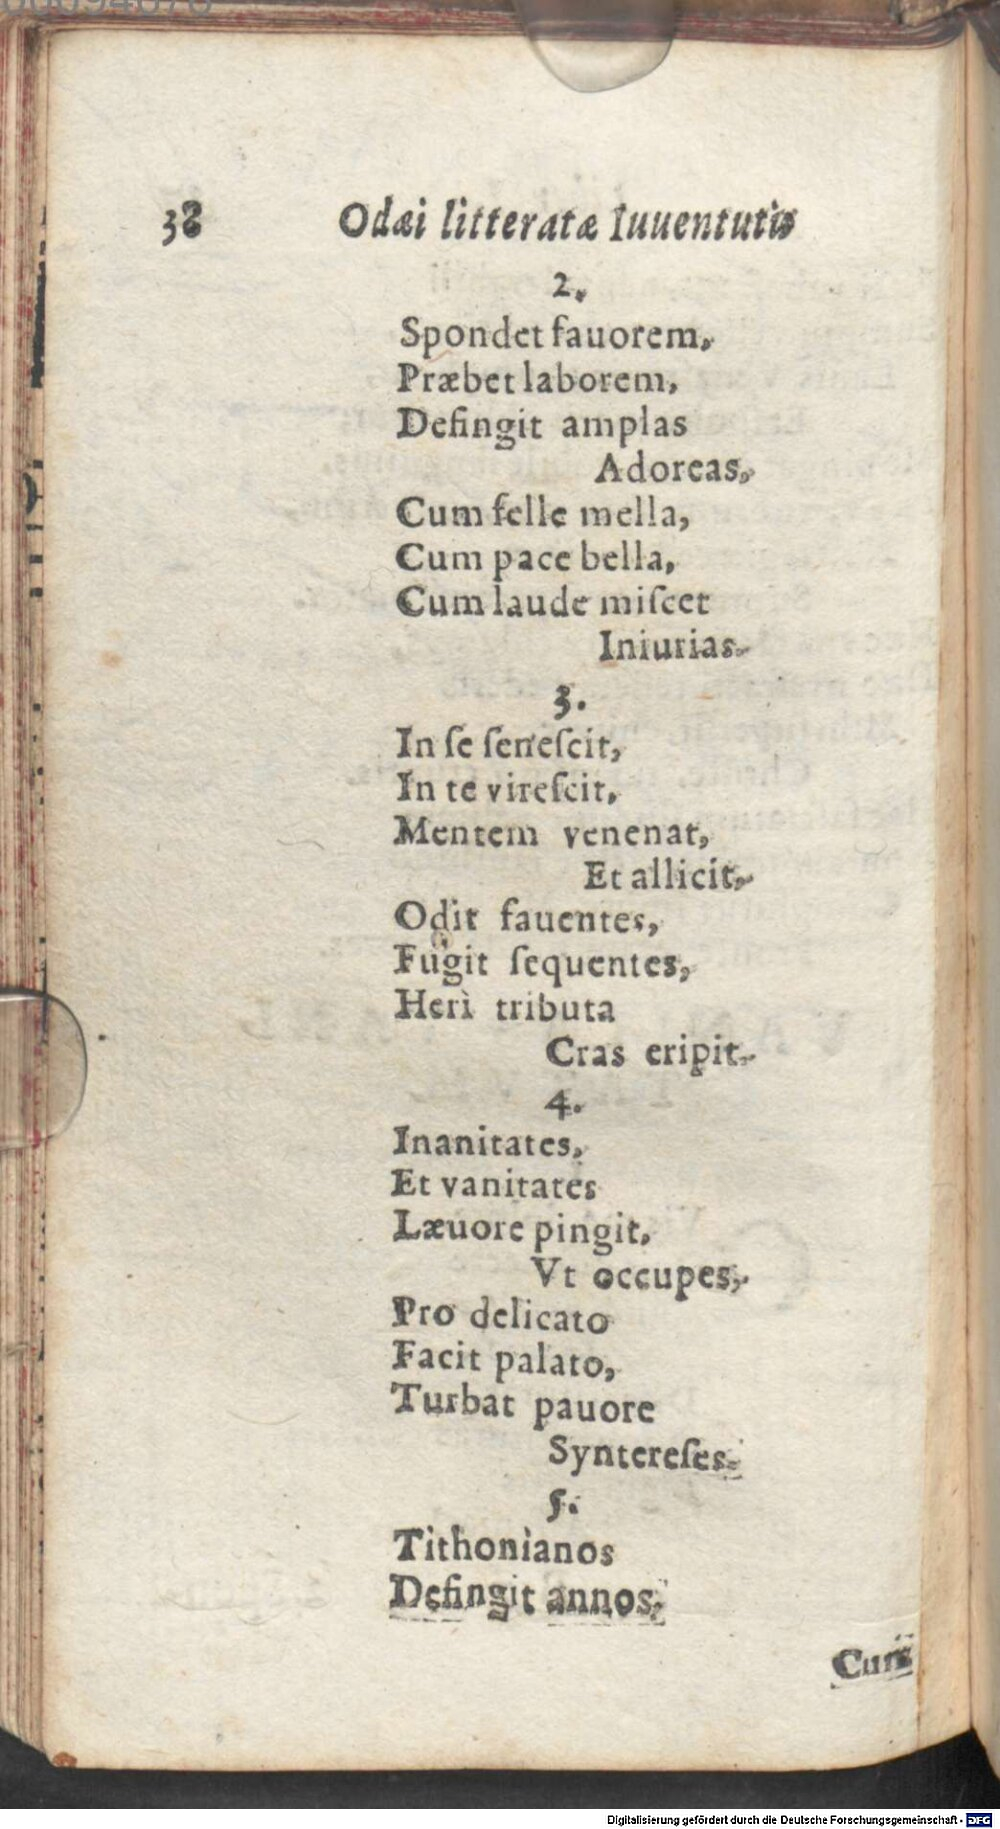 38 Odæi litteratæ Iuuentutis
2.
Spondet fauorem,
Præbet laborem,
Defingit amplas
Adoreas,
Cum felle mella,
Cum pace bella,
Cum laude miſcet
Iniurias.
3.
In ſe ſeneſcit,
In te vireſcit,
Mentem venenat,
Et allicit,
Odit fauentes,
Fugit ſequentes,
Herì tributa
Cras eripit.
4.
Inanitates,
Et vanitates
Læuore pingit,
Vt occupes,
Pro delicato
Facit palato,
Turbat pauore
Syntereſes.
5.
Tithonianos
Defingit annos,
Digitalisierung gefördert durch die Deutsche Forschungsgemeinschaft - DFG